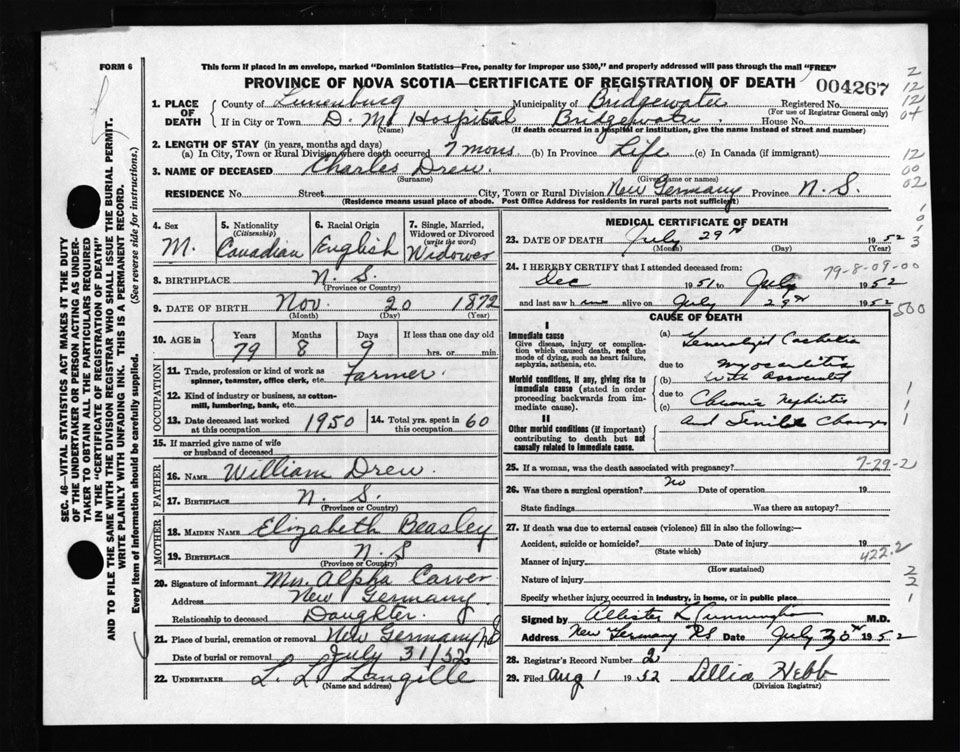 FORM 6
This form if placed in an envelope, marked "Dominion Statistics—Free, penalty for improper use $300," and properly addressed will pass through the mail "FREE"
PROVINCE OF NOVA SCOTIA—CERTIFICATE OF REGISTRATION OF DEATH
004267
1. PLACE OF DEATH County of Lunenburg Municipality of Bridgewater Registered No.
(For use of Registrar General only)
If in City or Town D. M. Hospital Bridgewater. House No.
(Name) (If death occurred in a hospital or institution, give the name instead of street and number)
2. LENGTH OF STAY (in years, months and days)
(a) In City, Town or Rural Division where death occurred 7 mons (b) In Province Life (c) In Canada (if immigrant)
3. NAME OF DECEASED Charles Drew.
(Surname) (Given name or names)
RESIDENCE No. Street City, Town or Rural Division New Germany Province N. S.
(Residence means usual place of abode. Post Office Address for residents in rural parts not sufficient)
4. Sex M.
5. Nationality (Citizenship) Canadian
6. Racial Origin English
7. Single, Married, Widowed or Divorced (write the word) Widower
8. BIRTHPLACE N. S.
(Province or Country)
9. DATE OF BIRTH Nov. 20 1872
(Month) (Day) (Year)
10. AGE in Years Months Days If less than one day old
79 8 9 hrs. or min.
OCCUPATION
11. Trade, profession or kind of work as spinner, teamster, office clerk, etc. Farmer.
12. Kind of industry or business, as cotton-mill, lumbering, bank, etc.
13. Date deceased last worked at this occupation 1950
14. Total yrs. spent in this occupation 60
15. If married give name of wife or husband of deceased
FATHER
16. NAME William Drew.
17. BIRTHPLACE N. S.
(Province or Country)
MOTHER
18. MAIDEN NAME Elizabeth Beasley
19. BIRTHPLACE N. S
(Province or Country)
20. Signature of informant Mrs. Alpha Carver
Address New Germany
Relationship to deceased Daughter.
21. Place of burial, cremation or removal New Germany NS
Date of burial or removal July 31/52
22. UNDERTAKER L. L. Langille
(Name and address)
MEDICAL CERTIFICATE OF DEATH
23. DATE OF DEATH July 29th 1952
(Month) (Day) (Year)
24. I HEREBY CERTIFY that I attended deceased from:
79-8-09-00
Dec 1951 to July 1952
and last saw him alive on July 29th 1952
500
CAUSE OF DEATH
I
Immediate cause
Give disease, injury or complication which caused death, not the mode of dying, such as heart failure, asphyxia, asthenia, etc.
(a) Generalized Cachexia
due to myocarditis
Morbid conditions, if any, giving rise to immediate cause (stated in order proceeding backwards from immediate cause).
(b) with Associated
due to Chronic Nephritis
(c)
II
Other morbid conditions (if important) contributing to death but not causally related to immediate cause.
and Senile Changes
25. If a woman, was the death associated with pregnancy?
7-29-2
26. Was there a surgical operation? No Date of operation 19
State findings Was there an autopsy?
27. If death was due to external causes (violence) fill in also the following:—
Accident, suicide or homicide? Date of injury 19
(State which)
422.2
Manner of injury
(How sustained)
Nature of injury
Specify whether injury occurred in industry, in home, or in public place
Signed by M.D.
Address New Germany NS Date July 30th 1952
28. Registrar's Record Number 2
29. Filed Aug 1 1952 Lillia Hebb
(Division Registrar)
SEC. 46—VITAL STATISTICS ACT MAKES IT THE DUTY
OF THE UNDERTAKER OR PERSON ACTING AS UNDER-
TAKER TO OBTAIN ALL THE PARTICULARS REQUIRED
IN THE "CERTIFICATE OF REGISTRATION OF DEATH"
AND TO FILE THE SAME WITH THE DIVISION REGISTRAR WHO SHALL ISSUE THE BURIAL PERMIT.
WRITE PLAINLY WITH UNFADING INK. THIS IS A PERMANENT RECORD.
Every item of information should be carefully supplied. (See reverse side for instructions.)
2
12
12
04
12
00
02
1
0
1
3
1
1
1
2
2
1